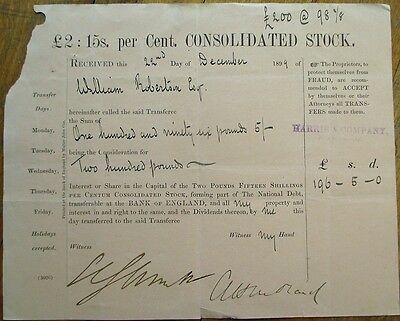 £200 @ 98 ⅛
£2 : 15s. per Cent. CONSOLIDATED STOCK.
RECEIVED this 22nd Day of December 1899 of
William Robertson Esq.
hereinafter called the said Transferee
the Sum of
One hundred and ninety six pounds 5/-
being the Consideration for
Two hundred pounds
Interest or Share in the Capital of the TWO POUNDS FIFTEEN SHILLINGS
PER CENTUM CONSOLIDATED STOCK, forming part of The National Debt,
transferable at the BANK OF ENGLAND, and all my property and
interest in and right to the same, and the Dividends thereon, by me this
day transferred to the said Transferee
Witness my Hand
Witness
Transfer
Days:
Monday,
Tuesday,
Wednesday,
Thursday,
Friday,
Holidays
excepted.
The Proprietors, to
protect themselves from
FRAUD, are recom-
mended to ACCEPT
by themselves or their
Attorneys all TRANS-
FERS made to them.
HARRIS & COMPANY.
£ s. d.
196 - 5 - 0